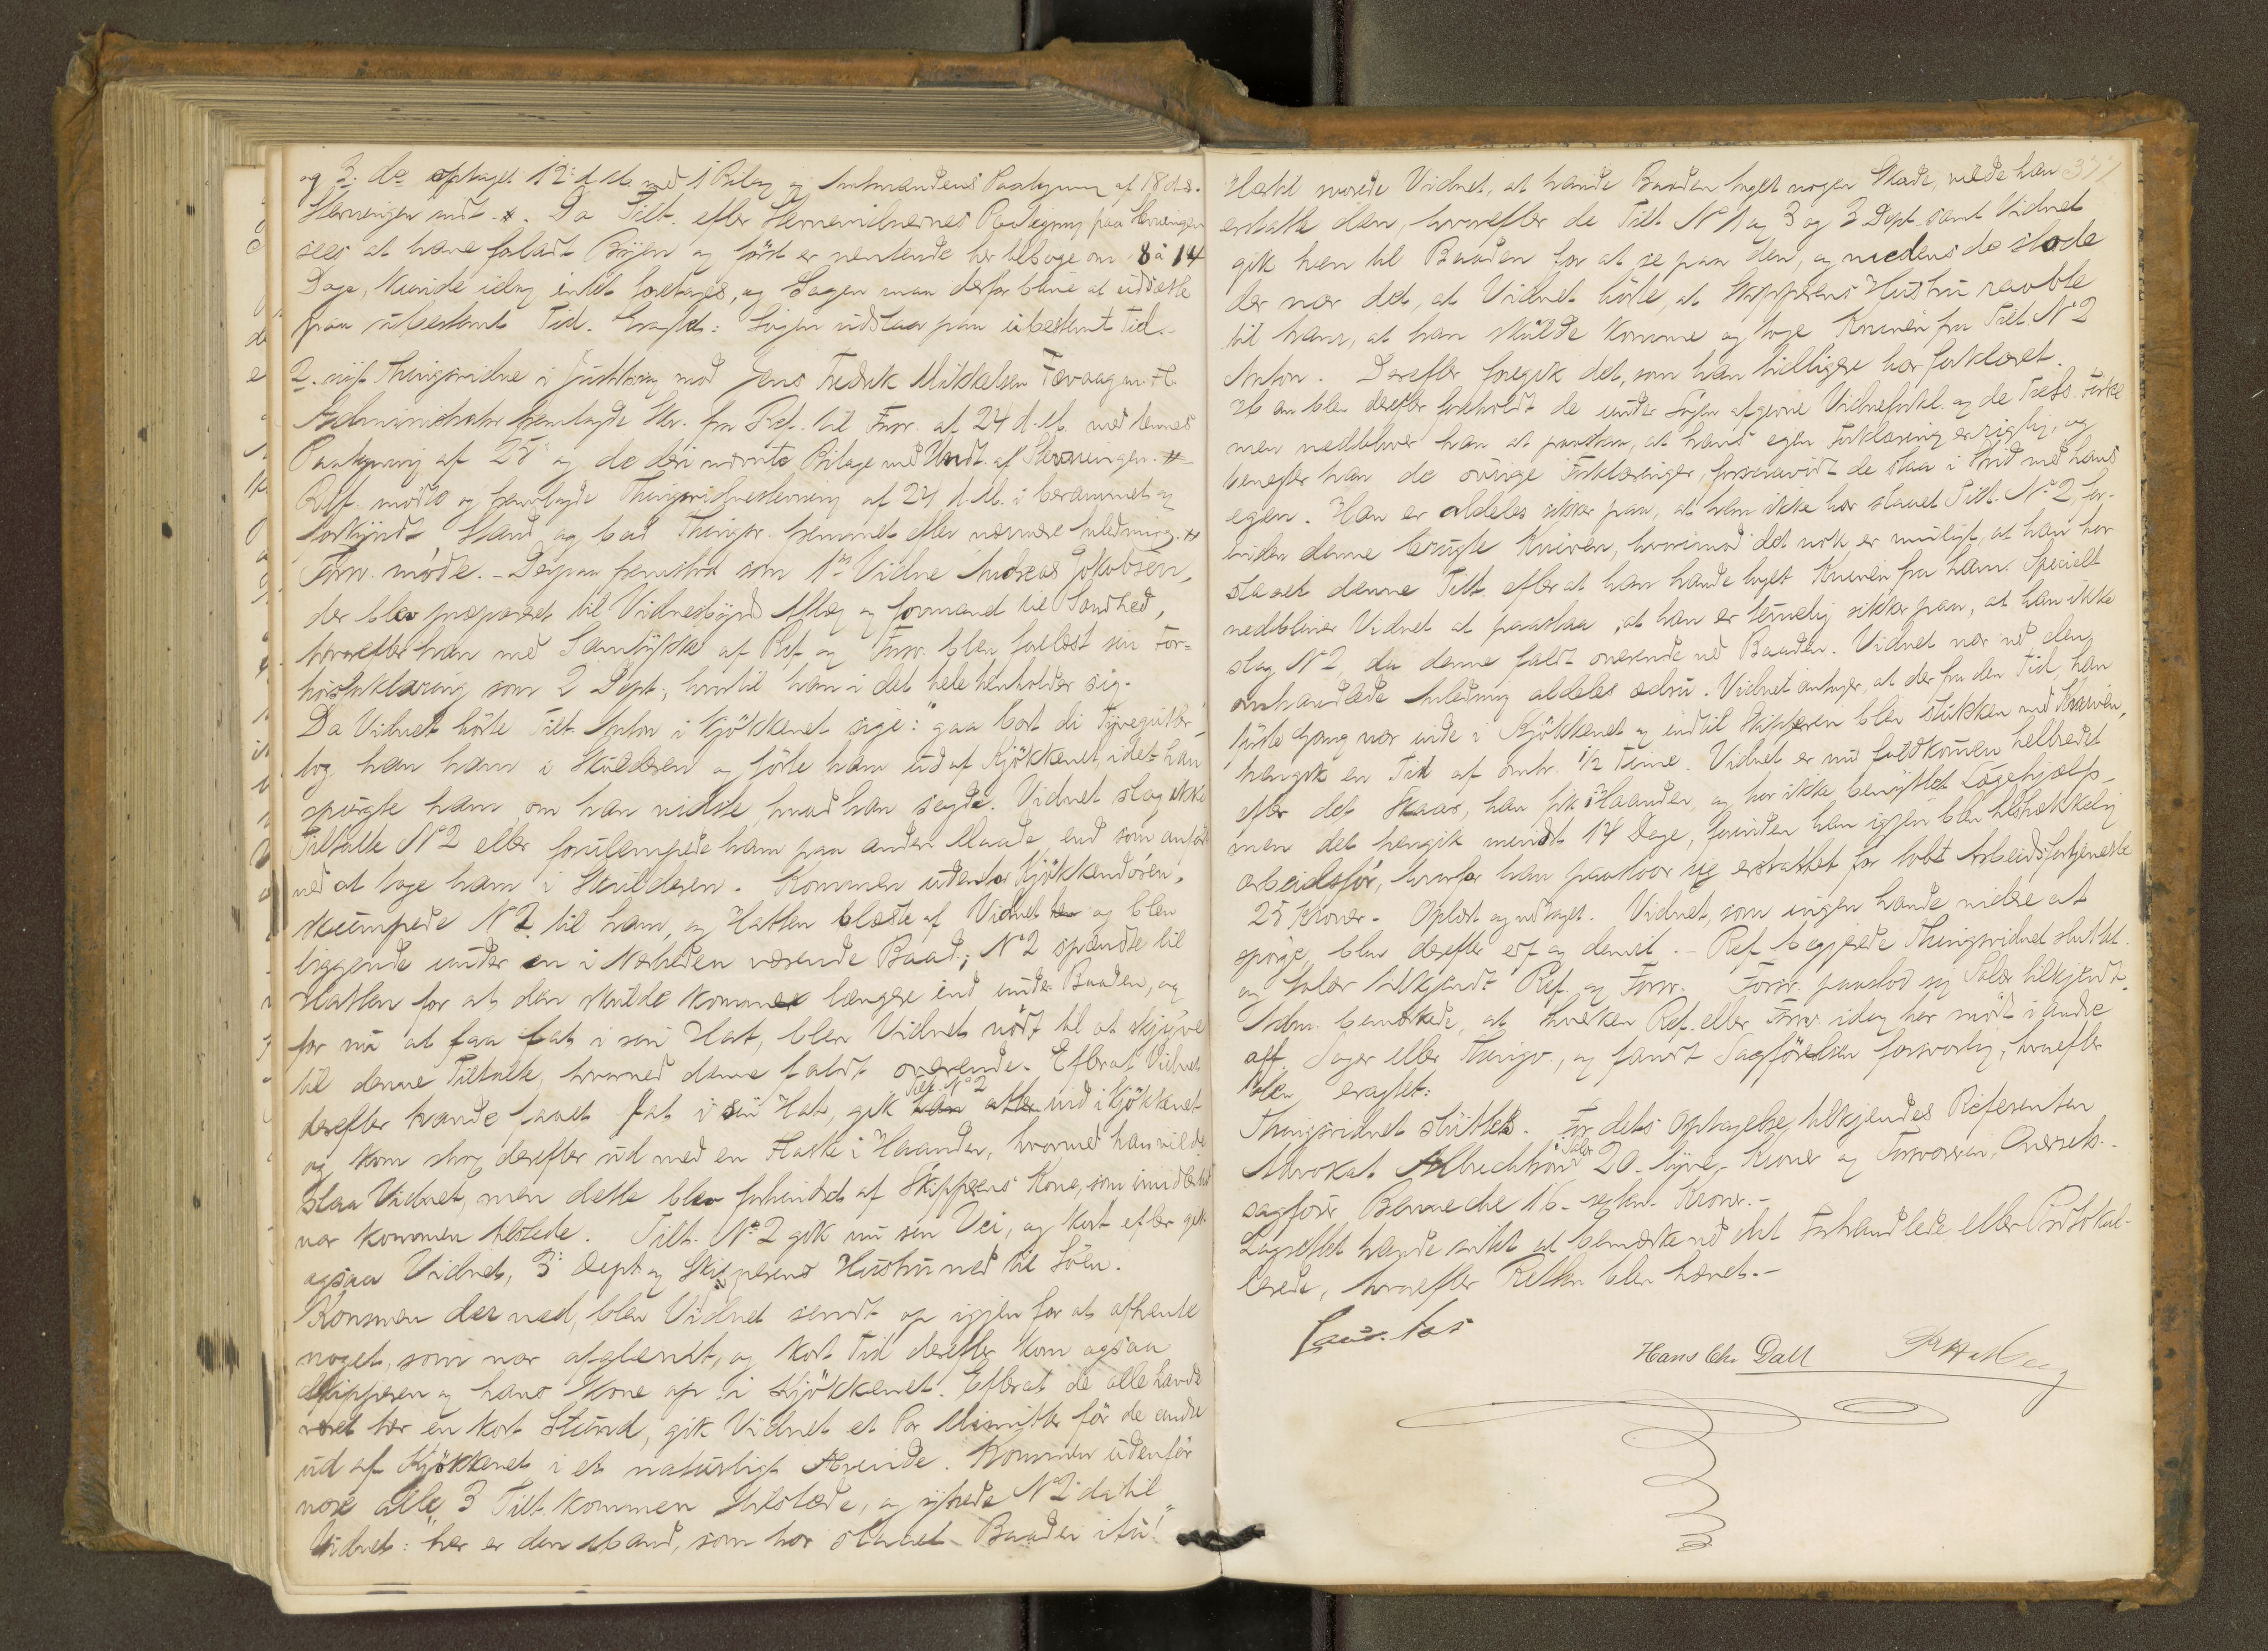 og 3. de optaget 12. d. M. med 1 Bilag og Amtmandens Paategning af 18 ds.
Stevningen indt. Da Tilt. efter Stevnevidnernes Paategning paa Stevningen
sees at have forladt Byen og först er ventende her tilbage om 8 à 14
Dage, kunde idag intet foretages, og Sagen maa derfor blive at udsætte
paa ubestemt Tid. Eragtet: Sagen udstaar paa ubestemt Tid.
2. nyt Thingsvidne i Justitssag mod Jens Fredrik Mikkelsen Tevaag m. fl.
Administrator fremlagde Skr. fra Ref. til Forsv. af 24 d. M. med dennes
Paategning af 25 og de deri nævnte Bilage med Undt. af Stevningen.
Ref. mødte og fremlagde Thingsvidnestevning af 24 d. M. i berammet og
forkyndt Stand og bad Thingsv. fremmet efter nærmere Anledning.
Forsv. møde. - Derpaa fremstod som 1ste Vidne Andreas Jakobsen,
der blev præpareret til Vidnesbyrds Aflæg og formanet til Sandhed,
hvorefter han med Samtykke af Ref. og Forsv. blev forelæst sin For-
hørsforklaring som 2 Dept., hvortil han i det hele henholder sig.
Da Vidnet hörte Tilt. Anton i Kjökkenet sige: "gaa bort di Tyvegutter",
tog han ham i Skulderen og förte ham ud af Kjökkenet, idet han
spurgte ham, om han vidste, hvad han sagde. Vidnet slog ikke
Tiltalte No 2 eller forulempede ham paa anden Maade, end som anfört
ved at tage ham i Skulderen. Kommen udenfor Kjökkendören,
skumpede No 2 til ham, og Hatten blæste af Vidnet og blev
liggende under en i Nærheden værende Baad; No 2 spændte til
Hatten for at den skulde komme længere ind under Baaden, og
for nu at faa fat i sin Hat, blev Vidnet nödt til at skyve
til denne Tiltalte, hvorved denne faldt overende. Efterat Vidnet
derefter havde faaet fat i sin Hat, gik Tilt. No 2 ind i Kjökkenet
og kom strax derefter ud med en Flaske i Haanden, hvormed han vilde
slaa Vidnet, men dette blev forhindret af Skipperens Kone, som imidlertid
var kommen tilstede. Tilt. No 2 gik nu sin Vei, og kort efter gik
ogsaa Vidnet, 3. Dept. og Skipperens Hustru ned til Söen.
Kommen der ned, blev Vidnet sendt op igjen for at afhente
noget, som var afglemt, og kort Tid derefter kom ogsaa
Skipperen og hans Kone op i Kjökkenet. Efterat de alle havde
været her en kort Stund, gik Vidnet et Par Minutter för de andre
ud af Kjökkenet i et naturligt Ærinde. Kommen udenför
vare alle 3 Tilt. kommen tilstede, og ytrede No 2 da til
Vidnet: "her er den Mand, som har slaaet Baaden itu!"
Hertil svarede Vidnet, at havde Baaden taget nogen Skade, vilde han
erstatte den, hvorefter de Tilt. No 1 og 3 og 3 Dept. samt Vidnet
gik hen til Baaden for at se paa den, og medens de stode
der var det, at Vidnet hörte, at Skipperens Hustru raabte
til ham, at han skulde komme og tage Kniven fra Tilt. No 2
Anton. Derefter foregik det, som han tidligere har forklaret.
Han blev derefter foreholdt de under Sagen afgivne Vidneforkl. og de Tilts. Forkl.
men vedbliver han at paastaa, at hans egen Forklaring er rigtig, og
benegter han de övrige Forklaringer, forsaavidt de staa i Strid med hans
egen. Han er aldeles sikker paa, at han ikke har slaaet Tilt. No 2, for-
inden denne brugte Kniven, hvorimod det nok er muligt, at han har
slaaet denne Tilt. efter at han havde taget Kniven fra ham. Specielt
vedbliver Vidnet at paastaa, at han er temmelig sikker paa, at han ikke
slog No 2, da denne faldt overende ved Baaden. Vidnet var ved den
omhandlede Anledning aldeles ædru. Vidnet antager, at der fra den Tid, han
første Gang var inde i Kjökkenet og indtil Skipperen blev stukken med Kniven,
hengik en Tid af omtr. 1/2 Time. Vidnet er nu fuldkommen helbredet
efter det Skaar, han fik i Haanden, og har ikke benyttet Lægehjælp,
men det hengik mindst 14 Dage, forinden han igjen blev tilstrækkelig
arbeidsför, hvorfor han paastaar sig erstattet for tabt Arbeidsfortjeneste
25 Kroner. Oplæst og vedtaget. Vidnet, som ingen havde videre at
spörge, blev derefter edf. og demit. - Ref. begjærede Thingsvidnet sluttet
og Salær tilkjendt Ref. og Forsv. Forsv. paastod sig Salær tilkjendt.
Adm. bemærkede, at hverken Ref. eller Forsv. idag har mödt i andre
off. Sager eller Thingsv., og fandt Sagförelsen forsvarlig, hvorefter
blev eragtet:
Thingsvidnet sluttes. For dets Optagelse tilkjendes Referenten
Advokat Albrechtson i Salær 20 - tyve - Kroner og Forsvareren, Overrets-
sagförer Benneche 16 - sexten Kroner. -
Lagrettet havde intet at bemærke ved det Forhandlede eller Protokol-
lerede, hvorefter Retten blev hævet. -
Hans Chr Dall